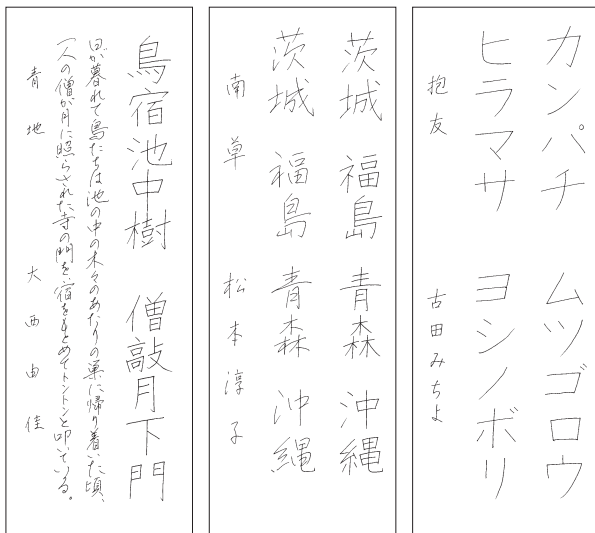 カンパチ ムツゴロウ
ヒラマサ ヨシノボリ
抱友 古田みちよ
茨城 福島 青森 沖縄
茨城 福島 青森 沖縄
南草 松本淳子
鳥宿池中樹 僧敲月下門
日が暮れて鳥たちは池の中の木々のあたりの巣に帰り着いた頃、
一人の僧が月に照らされた寺の門を、宿をもとめてトントンと叩いている。
青地 大西由佳